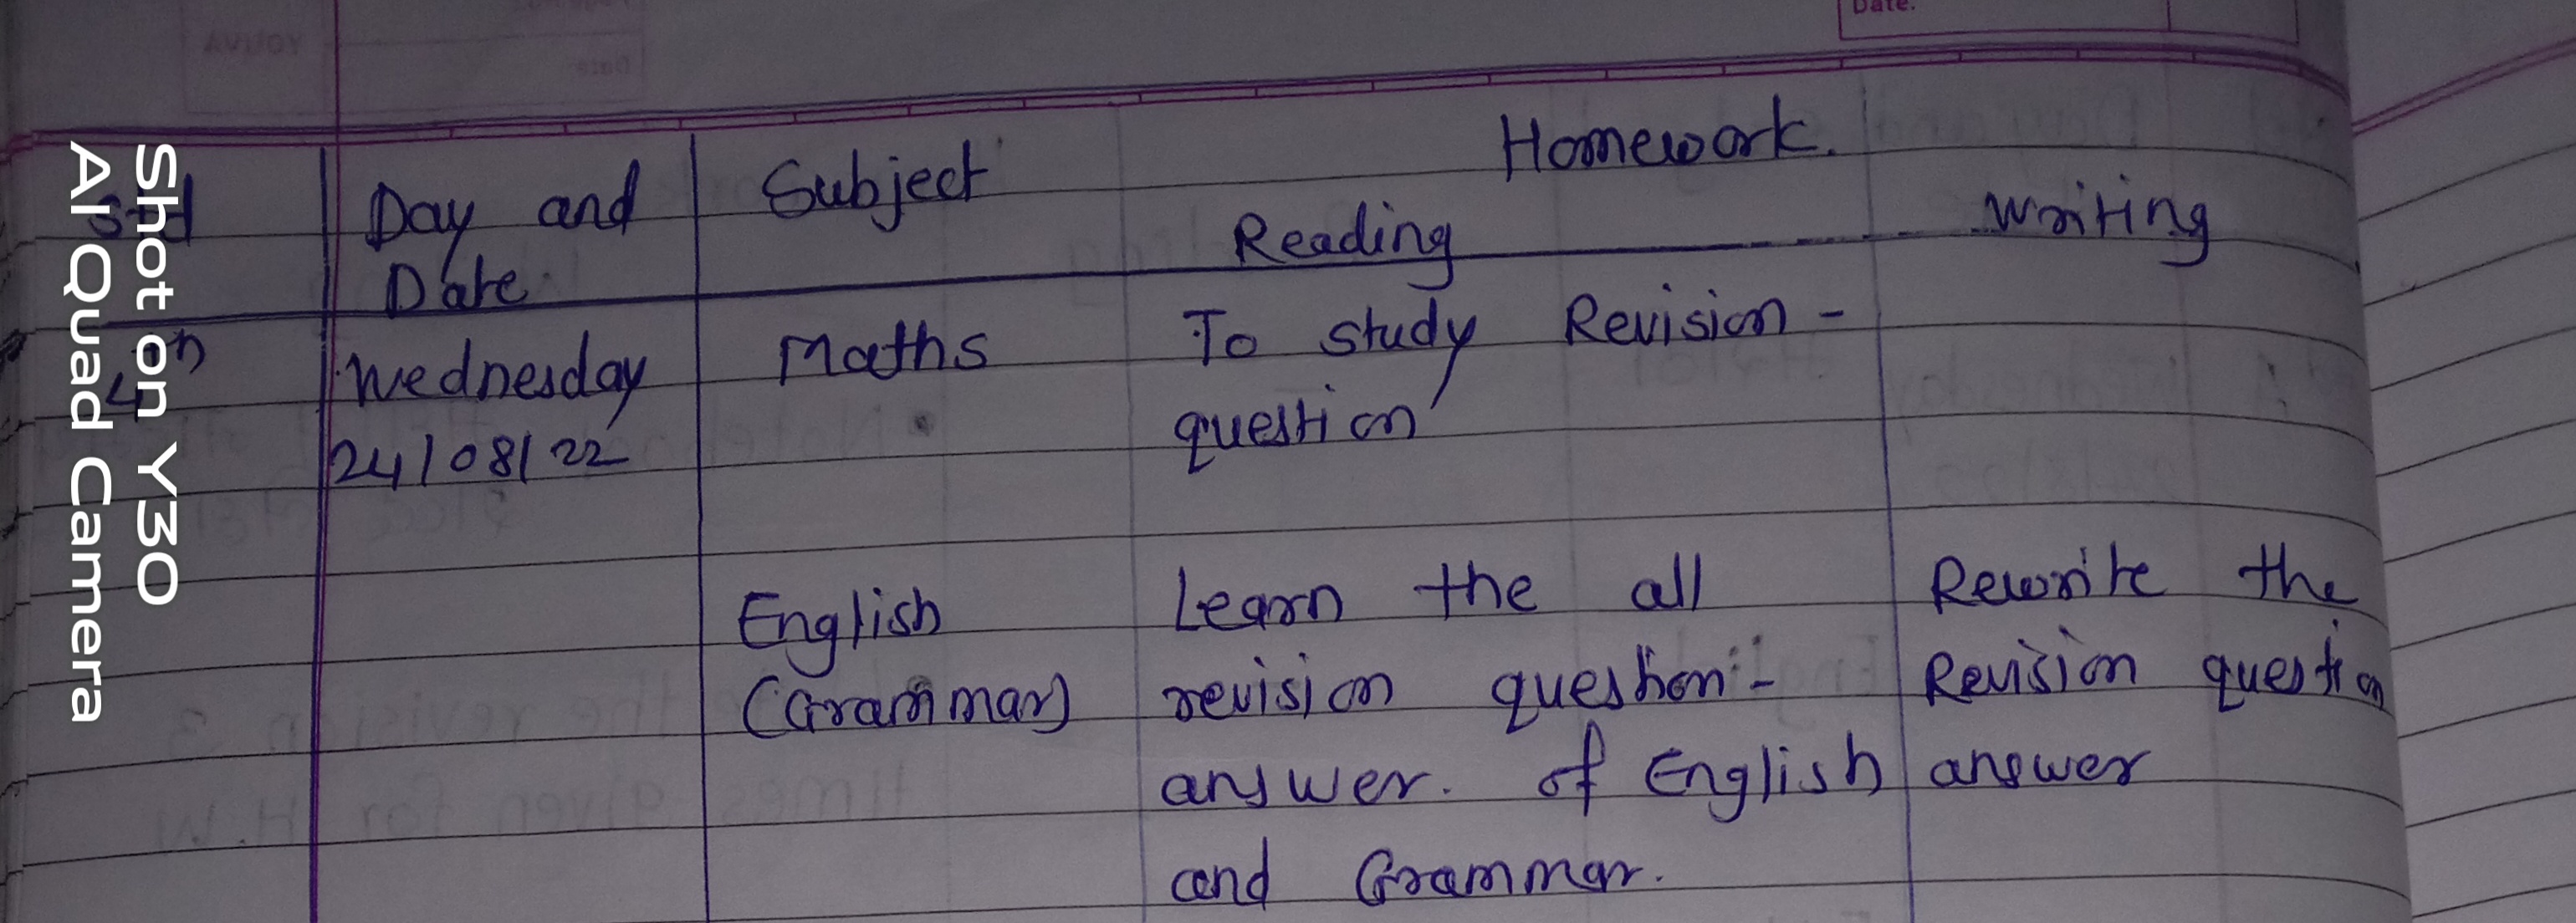 Date.
Homework.
Std Day and Subject
Reading Writing
Date
4th Wednesday Maths To study Revision -
24/08/22 question
English Learn the all Rewrite the
(Grammar) revision question:- Revision question
answer. of English answer
and Grammar.
Shot on Y30
AI Quad Camera